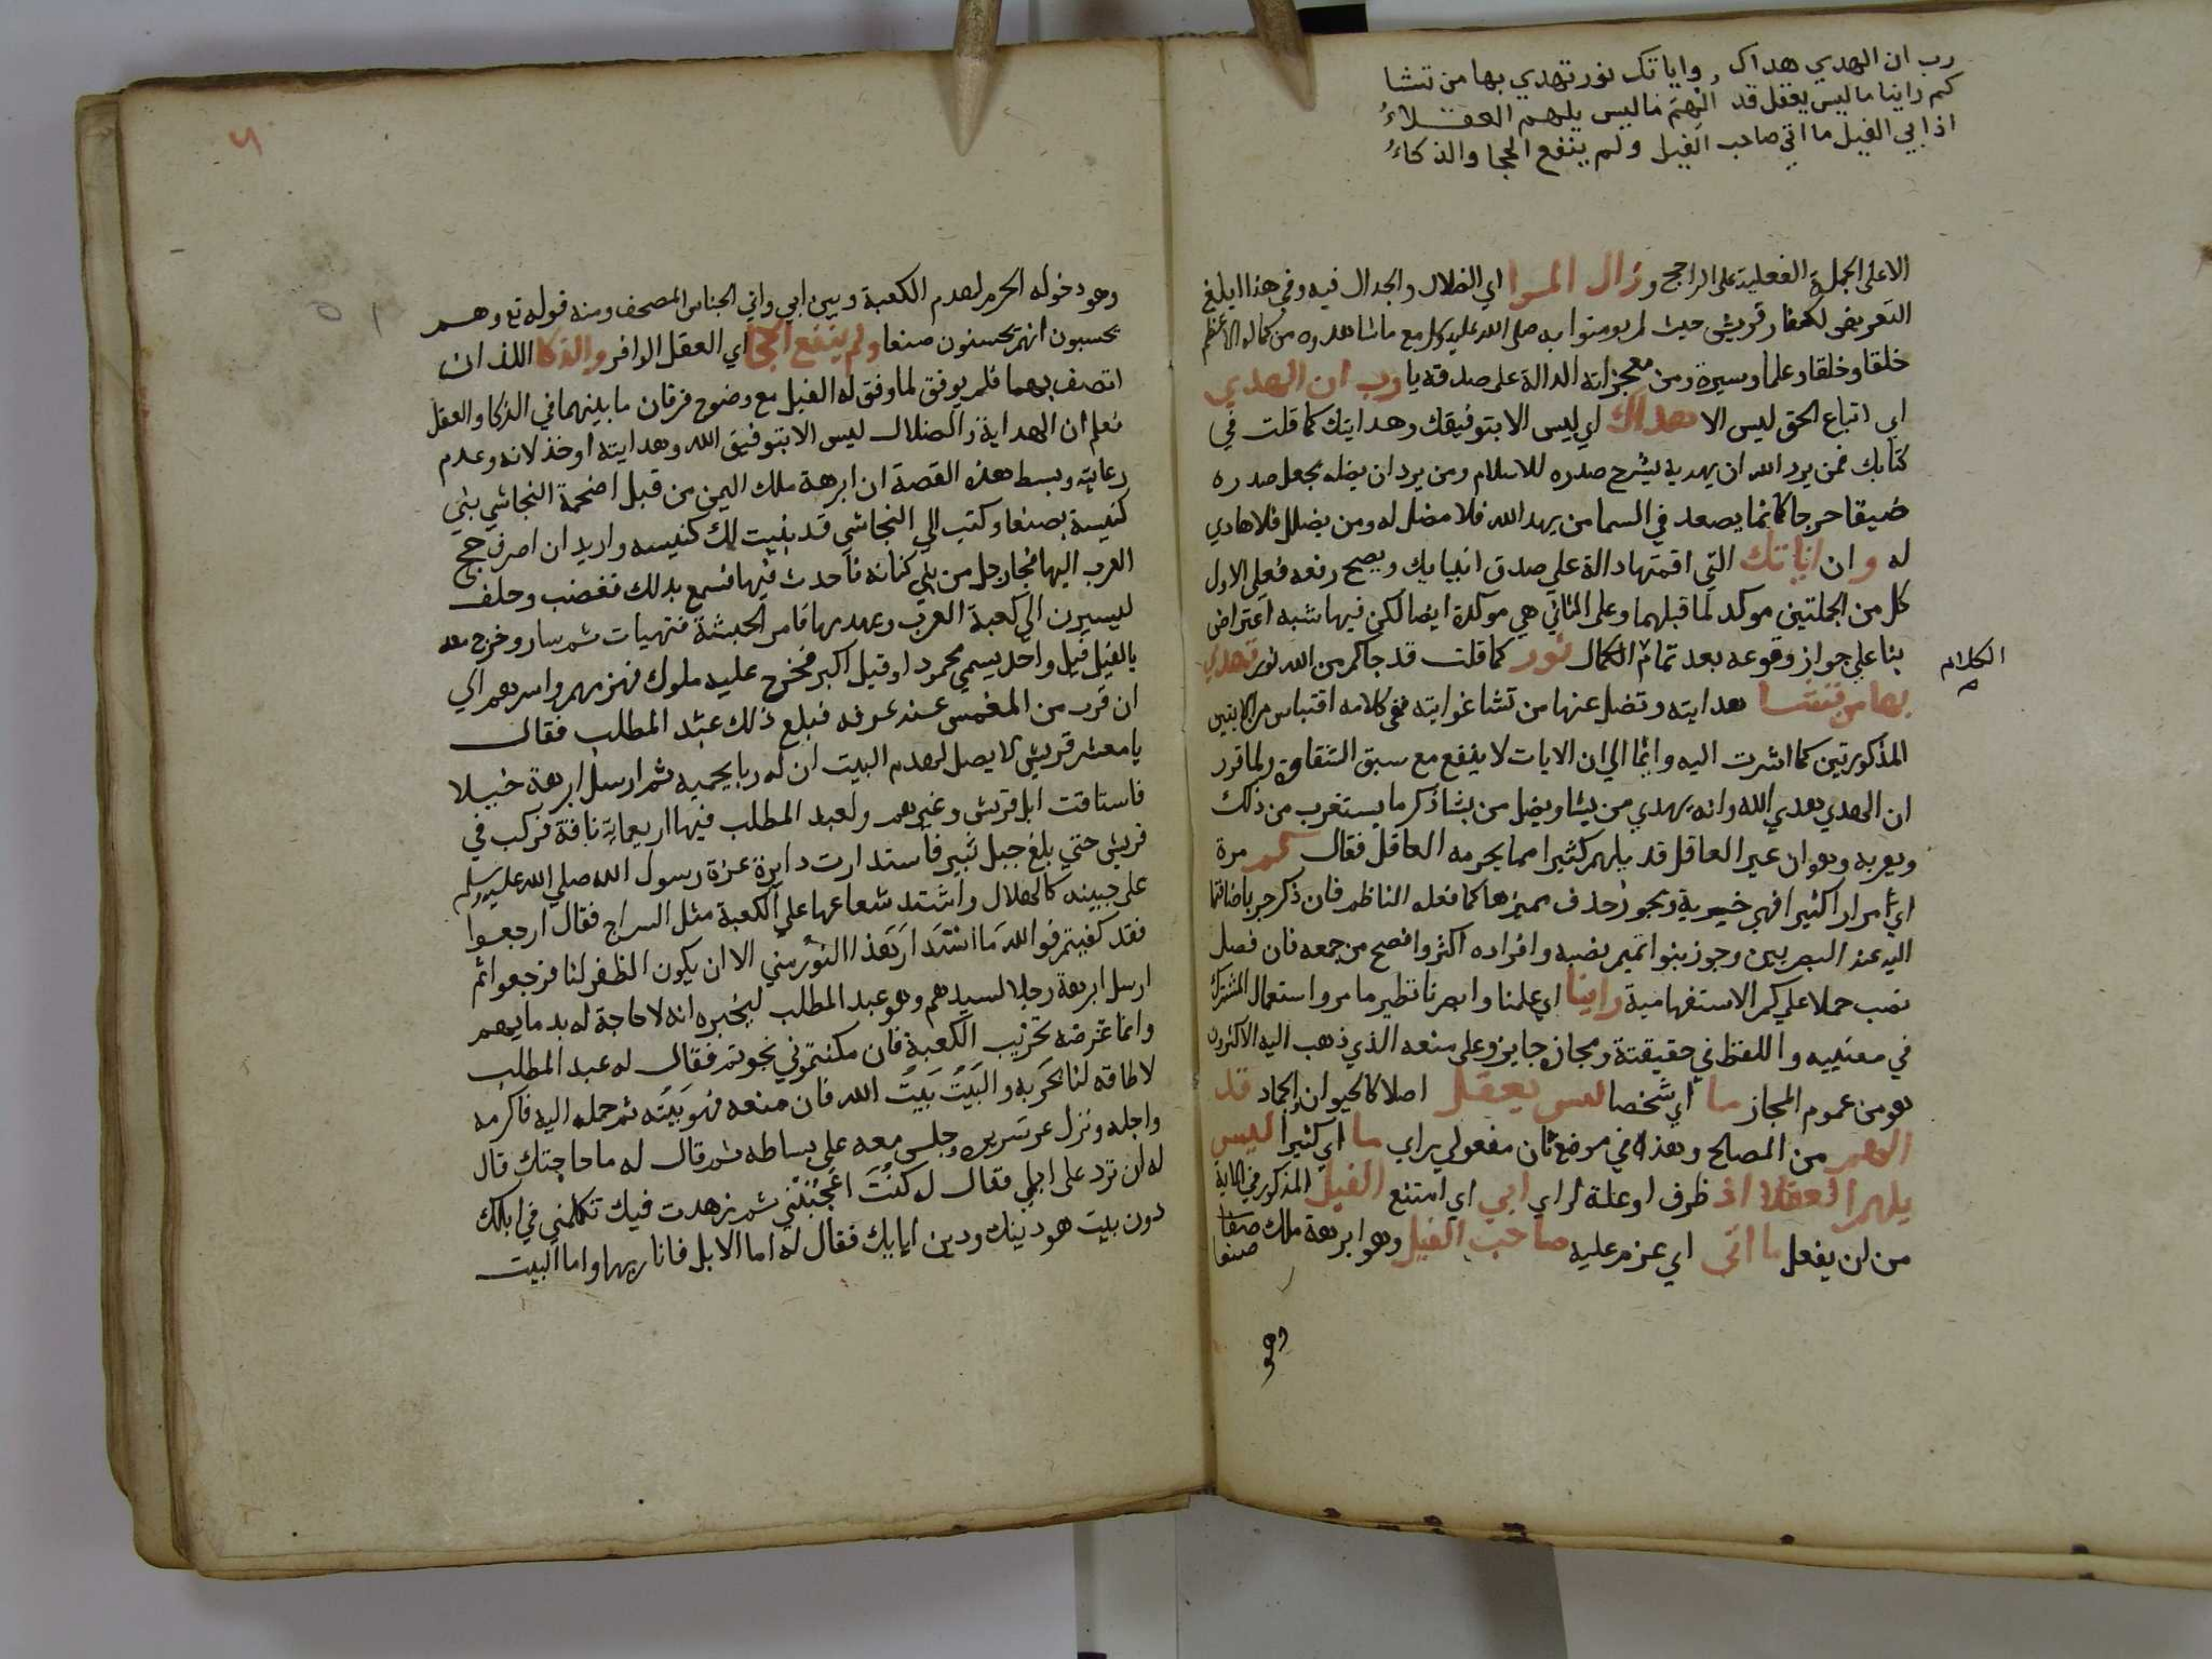 رب ان الهدي هداك وايا تك نور تهدي بها من تشا
كم راينا ما ليس يعقل قد الهم ما ليس يلهم العقلاءُ
اذ ابي الفيل ما اتي صاحب الفيل ولم ينفع الحجا والذكاءُ
الا على الجملة الفعلية على الراجح وزال المرا اي الضلال والجدال فيه وفي هذا ابلغ
التعريض لكفار قريش حيث لم يومنوا به صلى الله عليه وسلم مع ما شاهدوه من كماله الاعظم
خلقا وخلقا وعلما وسيرة ومن معجزاته الدالة على صدقه يا رب ان الهدي
اي اتباع الحق ليس الا هداك اي ليس الا بتوفيقك وهدايتك كما قلت في
كتابك فمن يرد الله ان يهديه يشرح صدره للاسلام ومن يرد ان يضله يجعل صدره
ضيقا حرجا كانما يصعد في السما من يهد الله فلا مضل له ومن يضلل فلا هادي
له وان اياتك التي اقمتها دالة علي صدق انبيايك ويصح رفعه فعلي الاول
كل من الجملتين موكد لما قبلهما وعلى الثاني هي موكدة ايضا لكن فيها شبه اعتراض
بنا علي جواز وقوعه بعد تمام الكمال نور كما قلت قد جاكم من الله نور تهدي
الكلام
بها من تشا هدايته وتضل عنها من تشا غوايته ففي كلامه اقتباس من الايتين
المذكورتين كما اشرت اليه وانما الي ان الايات لا ينفع مع سبق الشقاوة ولما قرر
ان الهدي هدي الله وانه يهدي من يشا ويضل من يشا ذكر ما يستغرب من ذلك
ويعربه وهو ان غير العاقل قد يلهم كثيرا مما يحرمه العاقل فقال كم مرة
اي مرارا كثيرا فهي خبرية ويجوز حذف مميزها كما فعله الناظم فان ذكر جر باضافتها
اليه عند البصريين وجوز بنوا تميم نصبه وافراده اكثر وافصح من جمعه فان فصل
نصب حملا علي كم الاستفهامية راينا اي علمنا وابصرنا نظير ما مر واستعمال المشترك
في معنييه واللفظ في حقيقتة ومجاز جايز وعلى منعه الذي ذهب اليه الاكثرون
هو من عموم المجاز ما اي شخصا ليس يعقل اصلا كالحيوان والجماد قد
الهم من المصالح وهذه في موضع ثان مفعولي براي ما اي كثيرا ليس
يلهم العقلا اذ ظرف او علة لراي ابي اي امتنع الفيل المذكور في الاية
من ان يفعل ما اتى اي عزم عليه صاحب الفيل وهو ابرهة ملك صنعا
صنعا
وهو
وهو دخوله الحرم لهدم الكعبة وبين ابي واتي الجناس المصحف ومنه قوله تع وهم
يحسبون انهم يحسنون صنعا ولم ينفع الحجا اي العقل الوافر والذكا اللذان
اتصف بهما فلم يوفق لما وفق له الفيل مع وضوح فرقان ما بينهما في الذكا والعقل
فعلم ان الهداية والضلال ليس الا بتوفيق الله وهدايته او خذلانه وعدم
رعايته وبسط هذه القصة ان ابرهة ملك اليمن من قبل اضحمة النجاشي بني
كنيسة بصنعا وكتب الي النجاشي قد بنيت لك كنيسه واريد ان اصرف حج
العرب اليها فجا رجل من بني كنانه فاحدث فيها فسمع بذلك فغضب وحلف
ليسيرن الي كعبة العرب ويهدمها فامر الحبشة فتهيات ثم سار وخرج معه
بالفيل فيل واحد يسمي محمود او قيل اكبر فخرج عليه ملوك فهزمهم واسرهم الي
ان قرب من المغمس عند عرفه فبلغ ذلك عبد المطلب فقال
يا معشر قريش لا يصل لهدم البيت ان له ربا يحميه ثم ارسل ابرهة خيلا
فاستاقت ابل قريش وغيرهم ولعبد المطلب فيها اربعماية ناقة فركب في
قريش حتي بلغ جبل ثبير فاستدارت دايرة غرة رسول الله صلي الله عليه وسلم
على جبينه كالهلال واشتد شعاعها على الكعبة مثل السراج فقال ارجعوا
فقد كفيتم فوالله ما استدار هذا النور مني الا ان يكون الظفر لنا فرجعوا ثم
ارسل ابرهة رجلا لسيدهم وهو عبد المطلب ليخبره انه لا حاجة له بدمايهم
وانما غرضه تخريب الكعبة فان مكنتموني نجوتم فقال له عبد المطلب
لا طاقه لنا بحربه والبيت بيت الله فان منعه فهو بيته ثم حمله اليه فاكرمه
واجله ونزل عن سريره وجلس معه علي بساطه ثم قال له ما حاجتك قال
له ان ترد على ابلي فقال له كنت اعجبتني ثم زهدت فيك تكلمني في ابلك
دون بيت هو دينك ودين ابايك فقال له اما الابل فانا ربها واما البيت